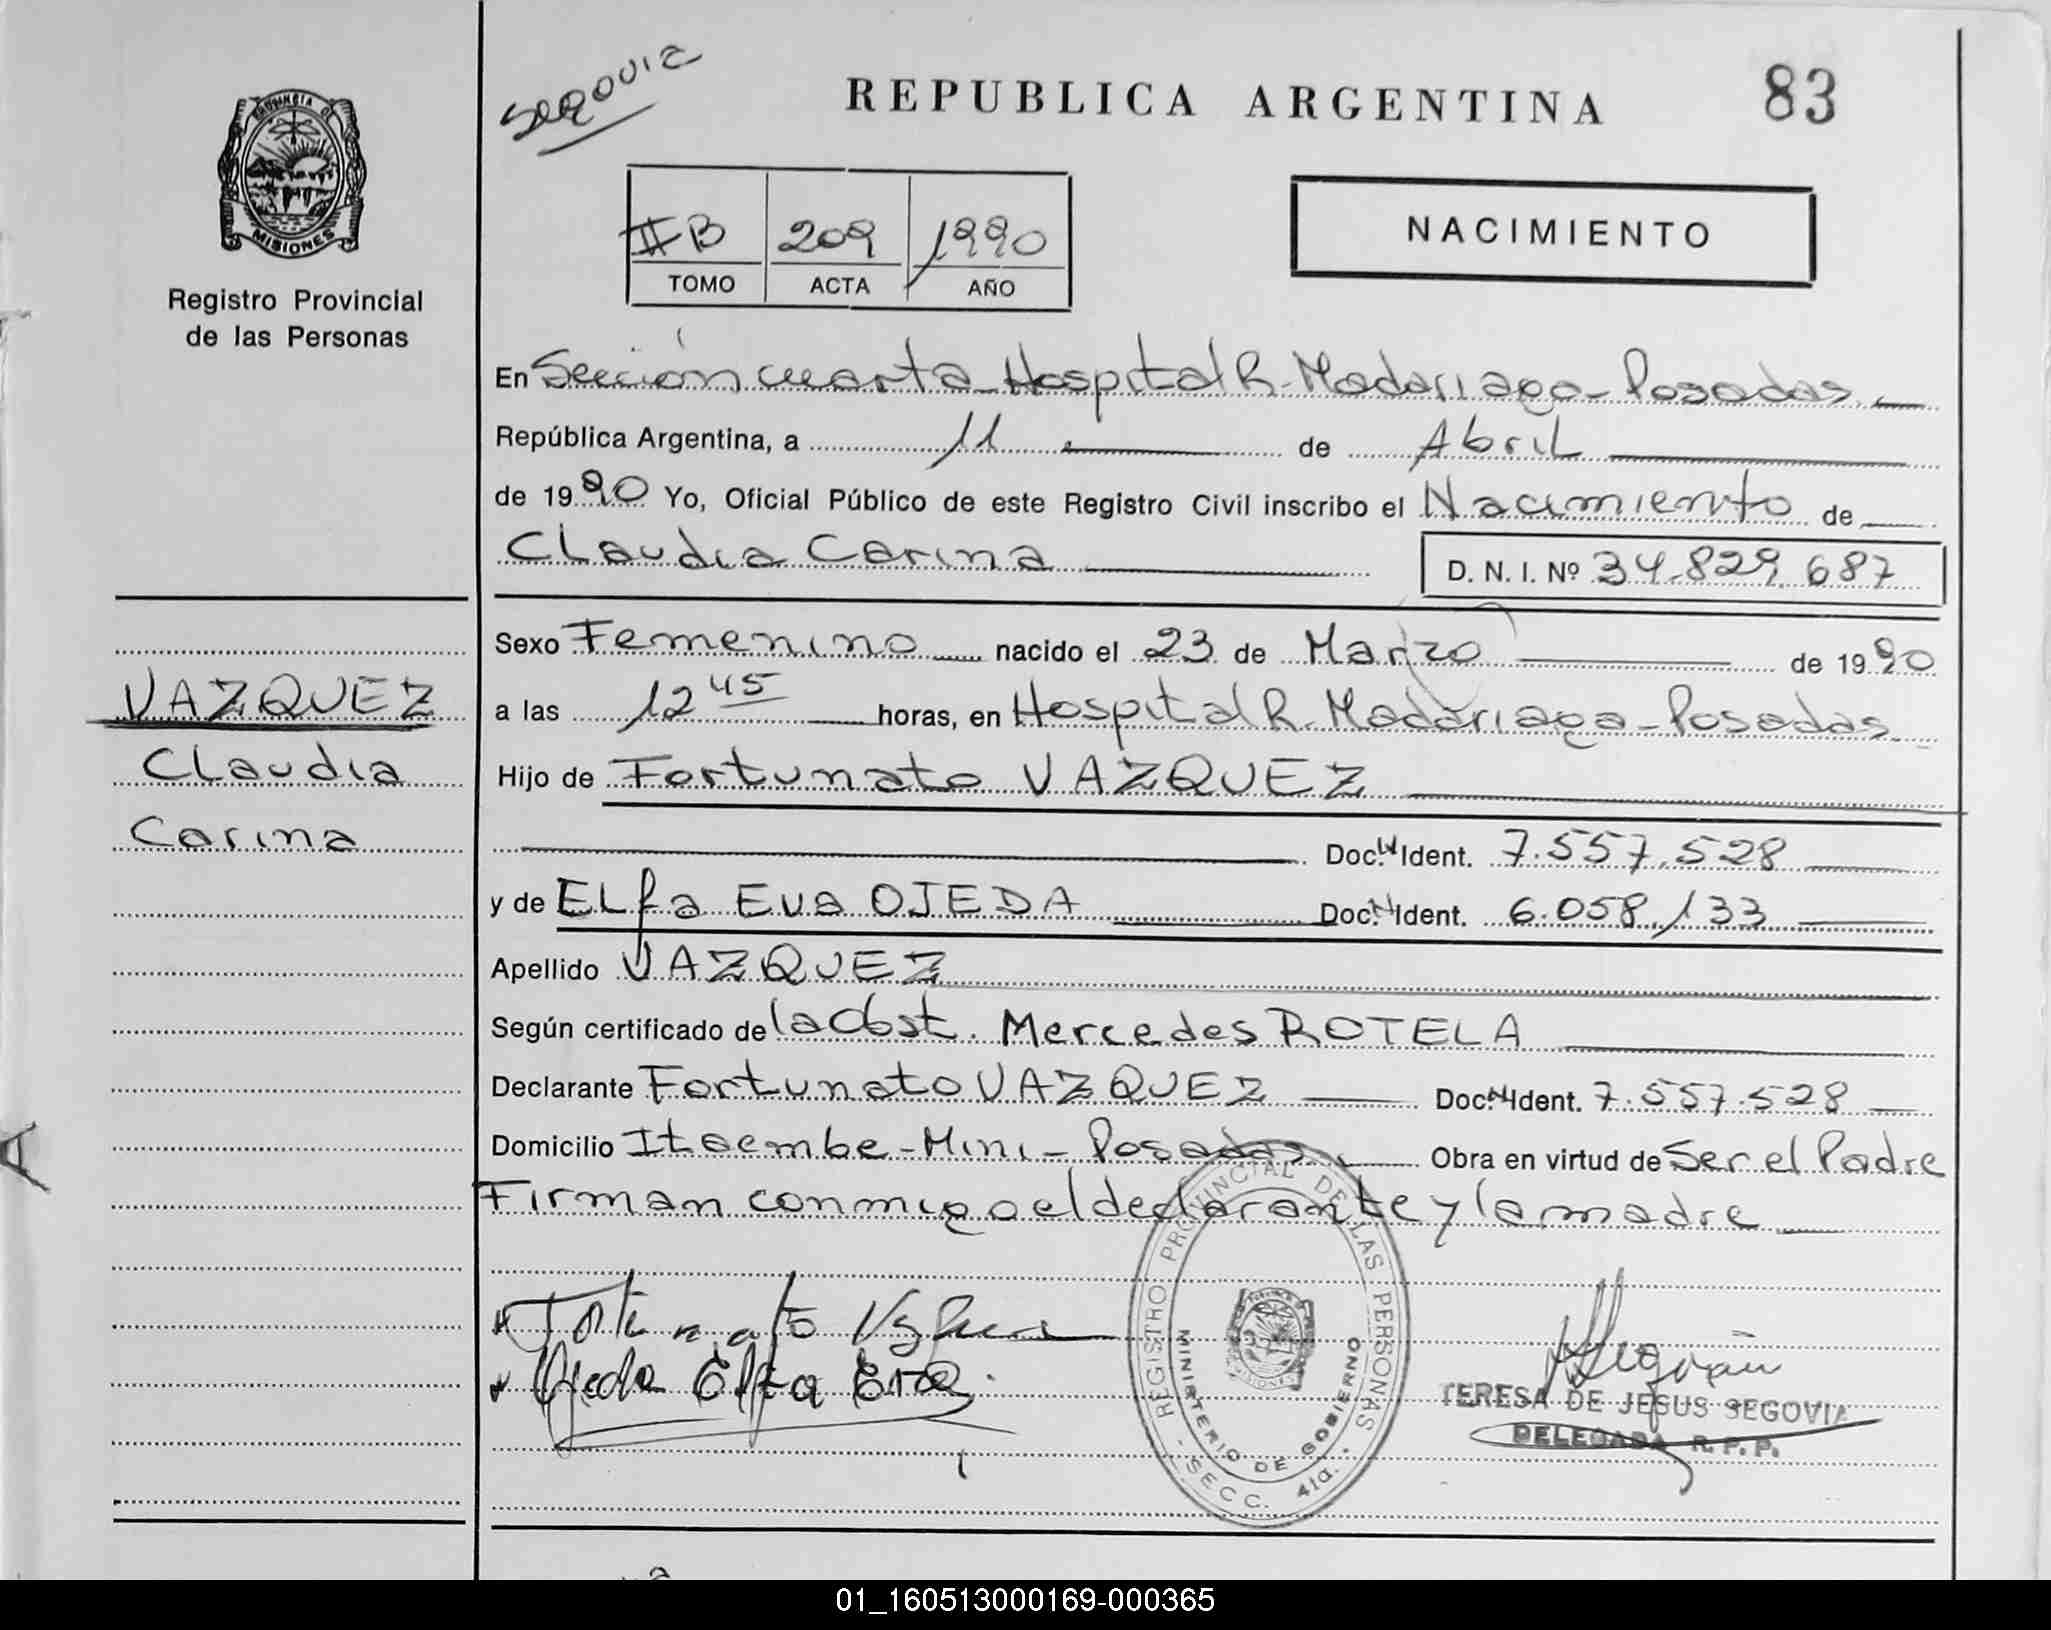 Segovia
REPUBLICA ARGENTINA
83
PROVINCIA DE
MISIONES
Registro Provincial
de las Personas
II B 209 1990
TOMO ACTA AÑO
NACIMIENTO
En Sección cuarta Hospital R. Madariaga - Posadas
República Argentina, a 11 de Abril
de 1990 Yo, Oficial Público de este Registro Civil inscribo el Nacimiento de
Claudia Carina
D. N. I. Nº 34.829.687
Sexo Femenino nacido el 23 de Marzo de 1990
a las 12 45 horas, en Hospital R. Madariaga - Posadas
Hijo de Fortunato VAZQUEZ
Doc. N Ident. 7.557.528
y de ELfa Eva OJEDA Doc. N Ident. 6.058.133
Apellido VAZQUEZ
Según certificado de la Obst. Mercedes ROTELA
Declarante Fortunato VAZQUEZ Doc. N Ident. 7.557.528
Domicilio Itaembe - Mini - Posadas Obra en virtud de Ser el Padre
Firman conmigo el declarante y la madre
VAZQUEZ
Claudia
Carina
Ojeda Elfa Eva
REGISTRO PROVINCIAL DE LAS PERSONAS
MINISTERIO DE GOBIERNO
SECC. 4ta.
TERESA DE JESUS SEGOVIA
DELEGADA R. P. P.
01_160513000169-000365